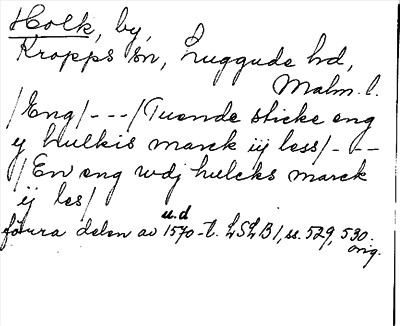 Holk, by,
Kropps sn, Luggude hd,
Malm. l.
/Eng/---/Tuende sticke eng
y hulkis marck iij less/---
/En eng wdj hulcks marck
ij les/
u.d
förra delen av 1570-t. LSLB1, ss. 529, 530.
orig.